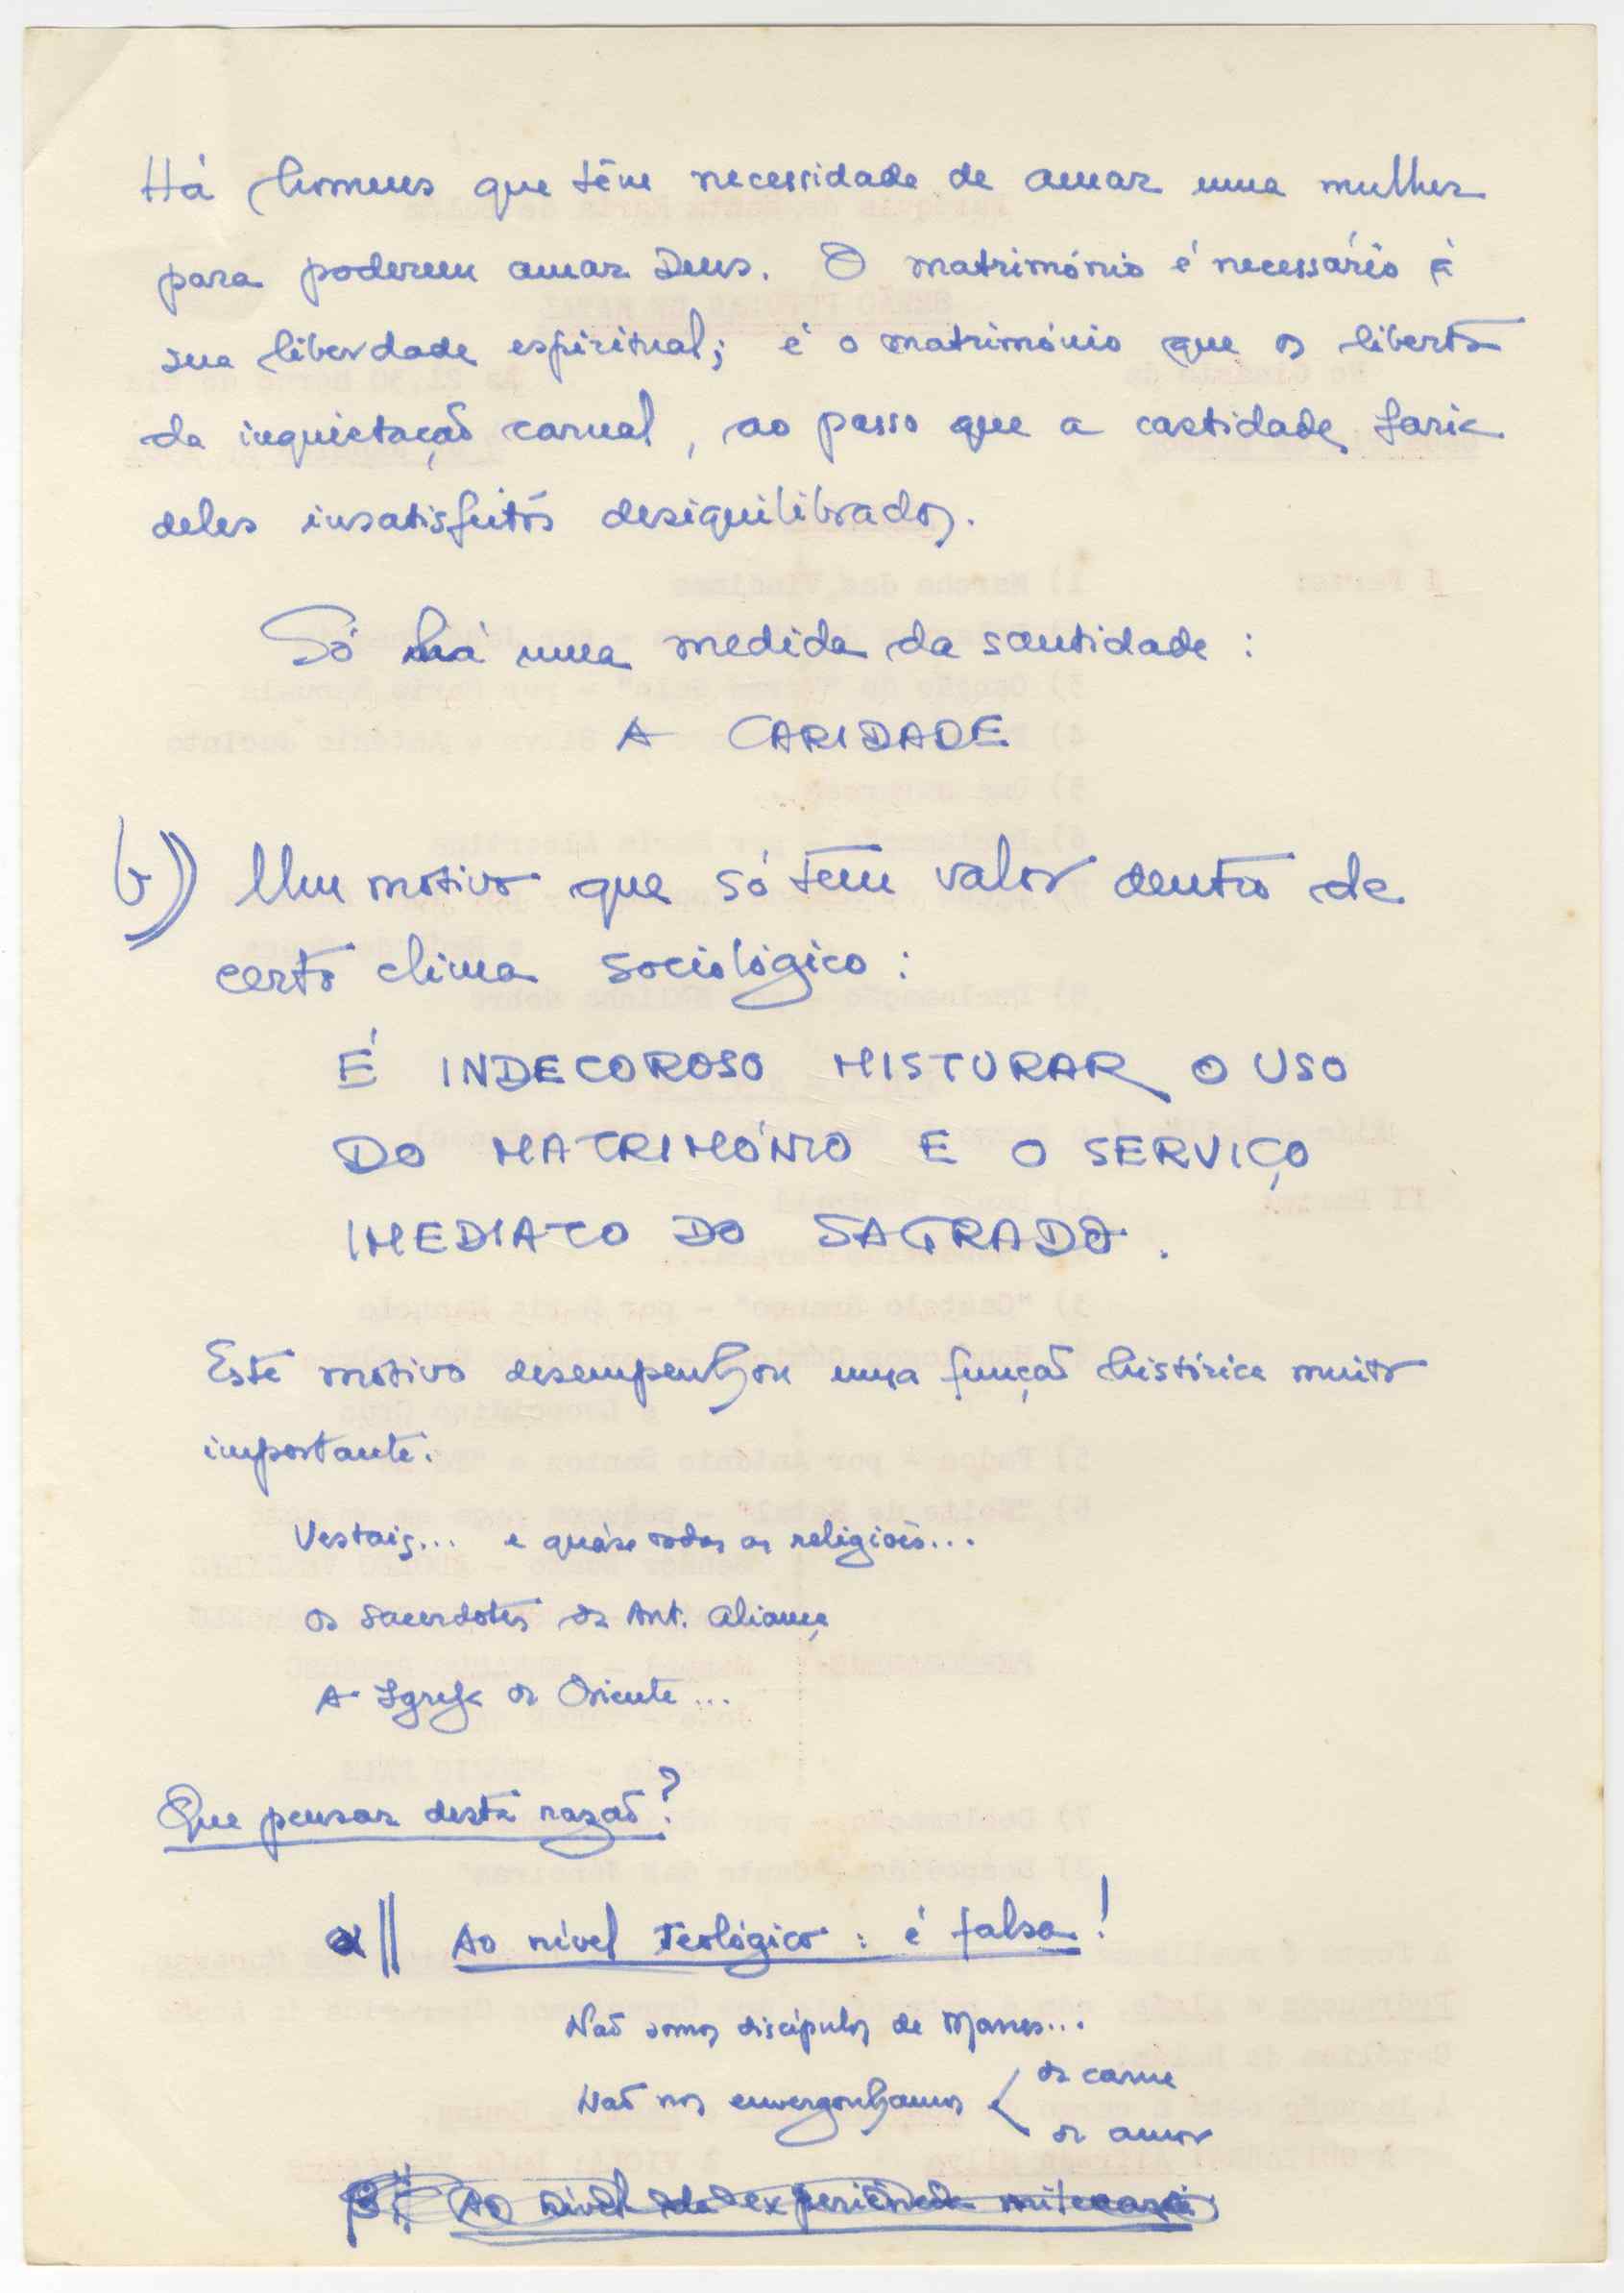 Há homens que têm necessidade de amar uma mulher
para poderem amar Deus. O matrimónio é necessário à
sua liberdade espiritual; é o matrimónio que os liberta
da inquietação carnal, ao passo que a castidade faria
deles insatisfeitos desiquilibrados.
Só há uma medida da santidade:
A CARIDADE
b) Um motivo que só tem valor dentro de
certo clima sociológico:
É INDECOROSO MISTURAR O USO
DO MATRIMÓNIO E O SERVIÇO
IMEDIATO DO SAGRADO.
Este motivo desempenhou uma função histórica muito
importante.
Vestais... e quáse todas as religiões...
Os sacerdotes da Ant. Aliança
A Igreja do Oriente...
Que pensar desta razão?
α|| Ao nível Teológico: é falsa!
Não somos discípulos de Manes...
Não nos envergonhamos < da carne
do amor
β|| Ao nível da experiência